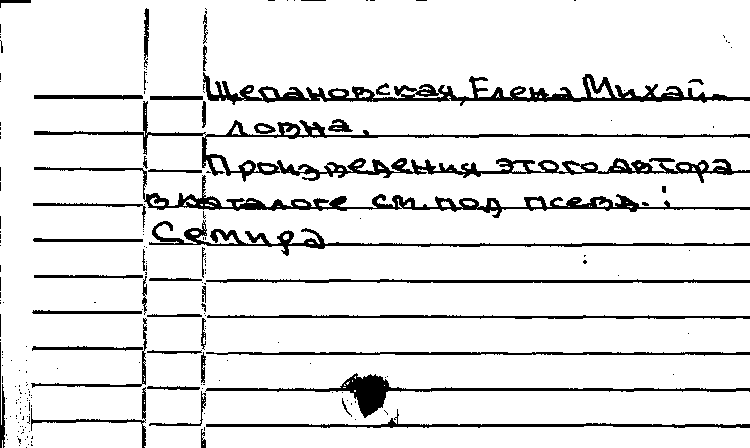 Щепановская, Елена Михай-
ловна.
Произведения этого автора
в каталоге см. под псевд. :
Семира